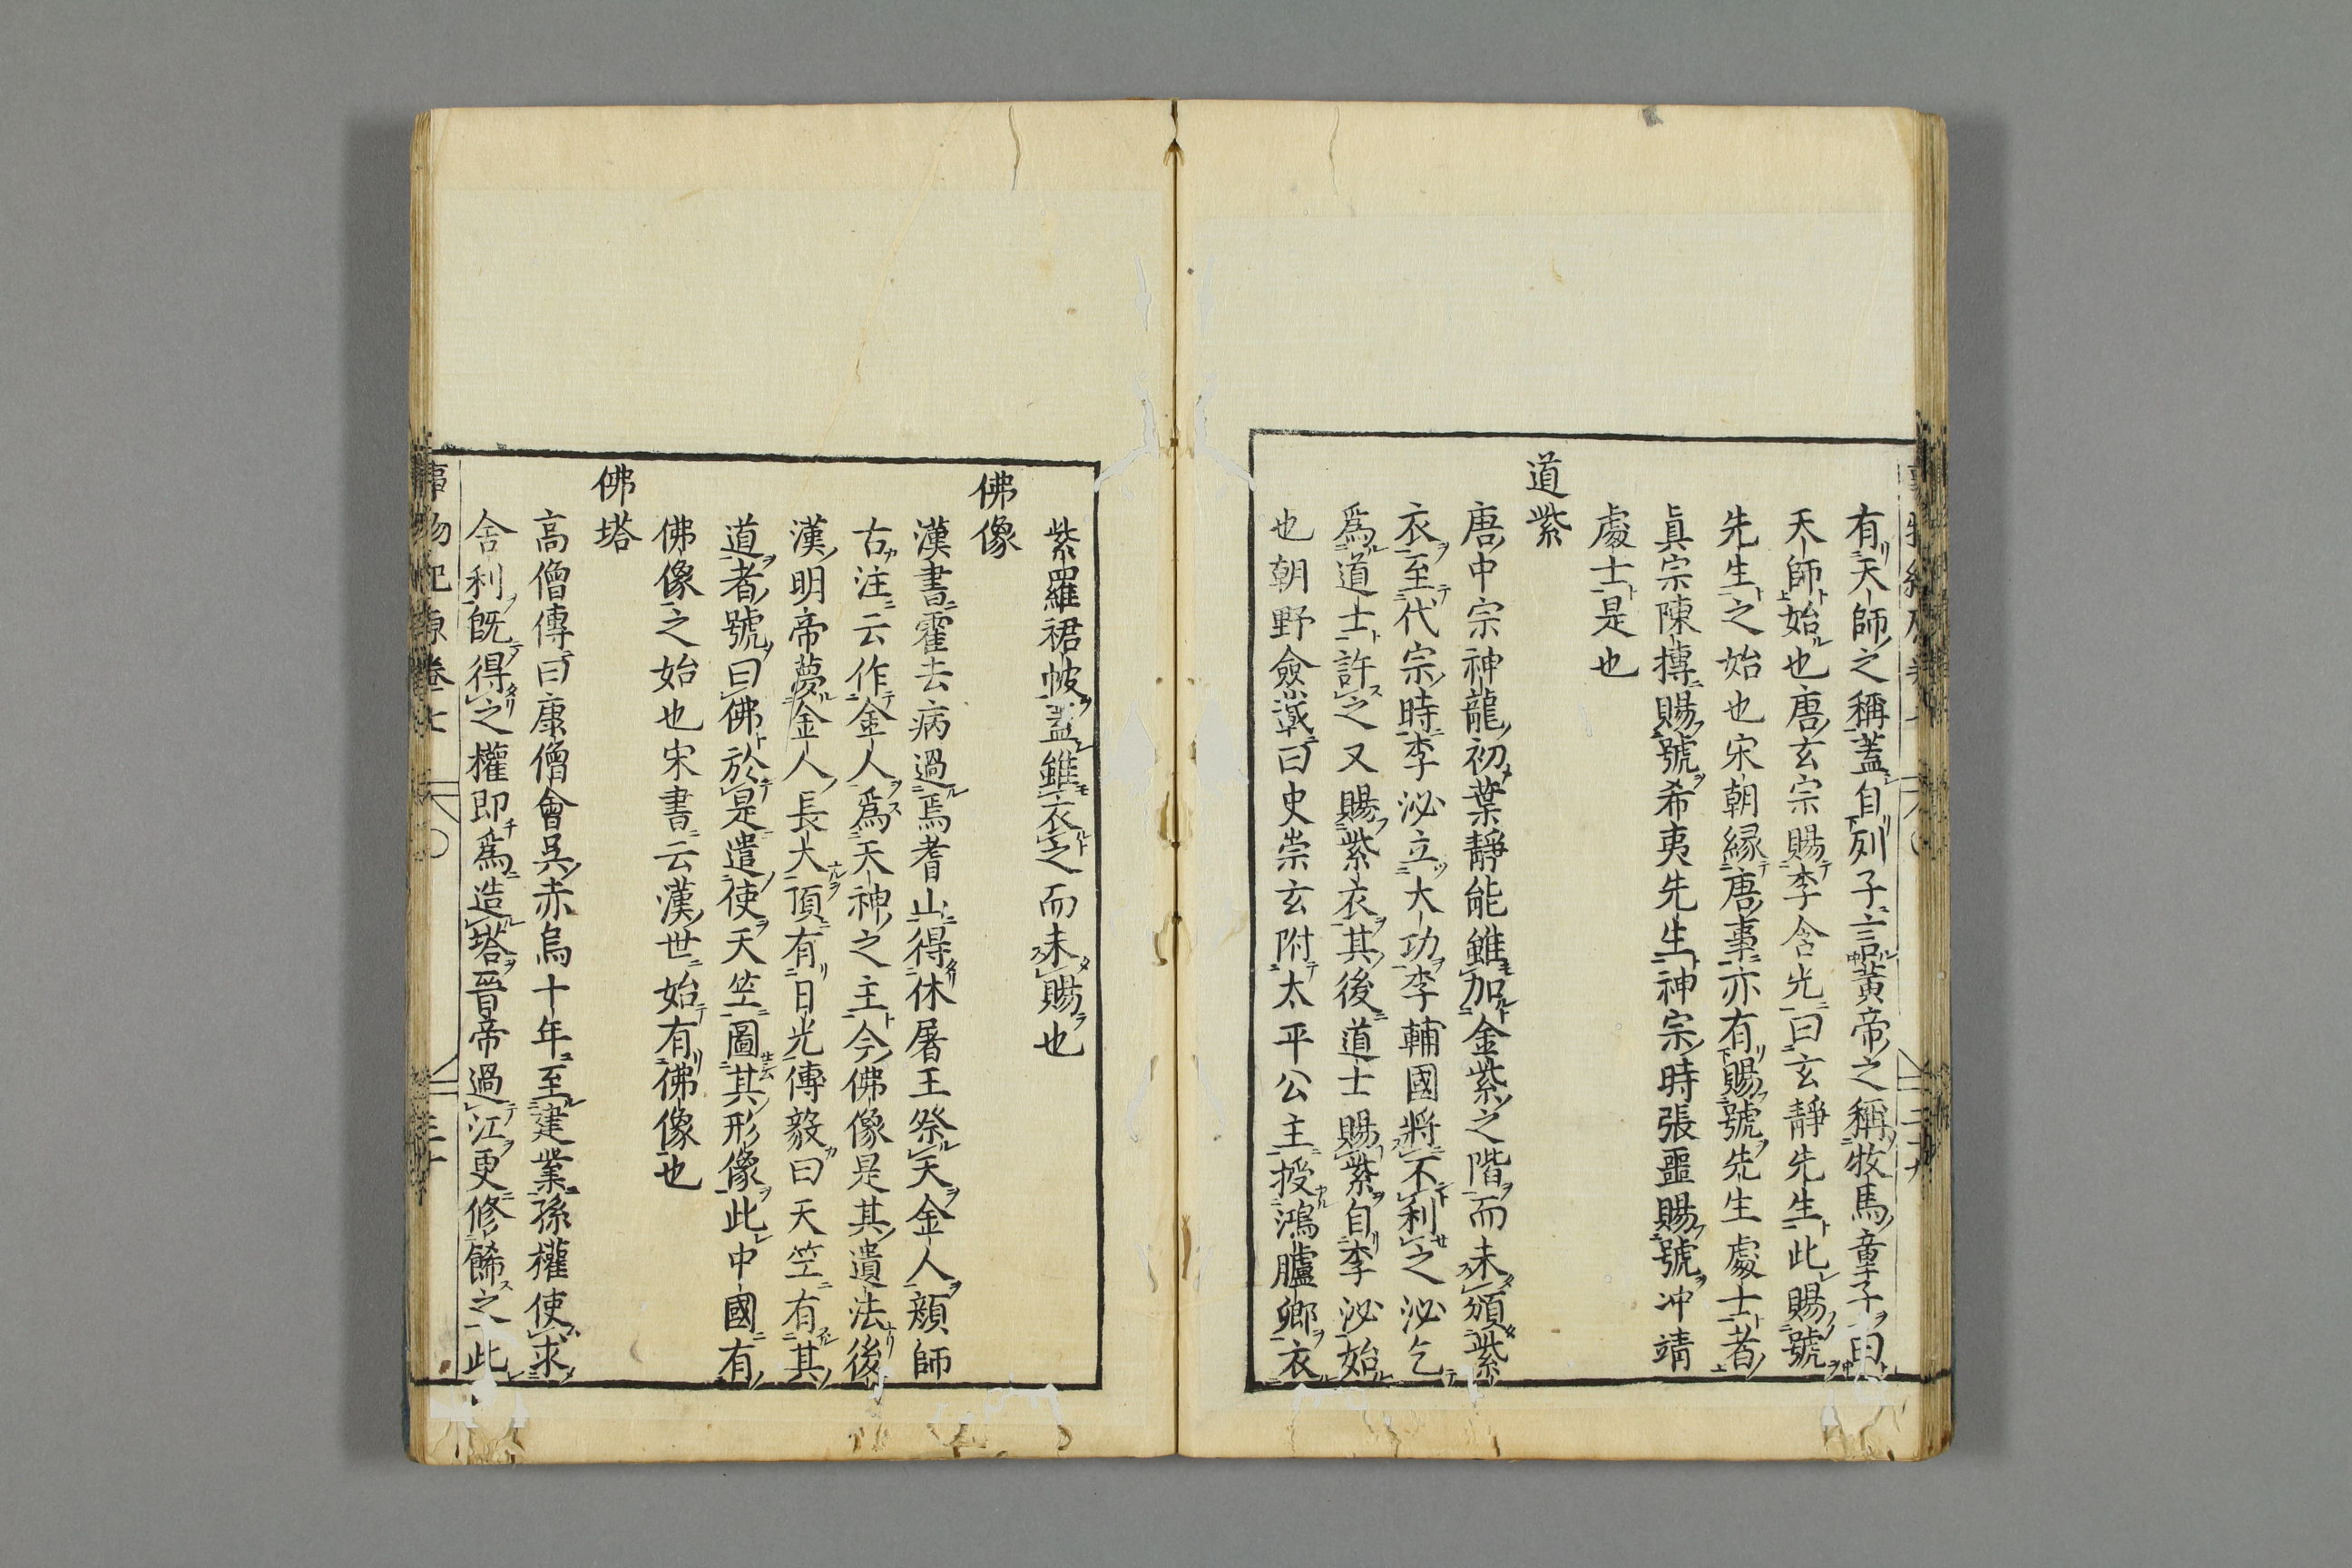 有天師之稱蓋自列子言黃帝之稱牧馬童子曰
天師始也唐玄宗賜李含光曰玄靜先生此賜號
先生之始也宋朝緣唐事亦有賜號先生處士者
眞宗陳摶賜號希夷先生神宗時張噩賜號冲靖
處士是也
道紫
唐中宗神龍初葉靜能雖加金紫之階而未頒紫
衣至代宗時李泌立大功李輔國將不利之泌乞
爲道士許之又賜紫衣其後道士賜紫自李泌始
也朝野僉載曰史崇玄附太平公主授鴻臚卿衣
紫羅裙帔蓋雖衣之而未賜也
佛像
漢書霍去病過焉耆山得休屠王祭天金人顏師
古注云作金人爲天神之主今佛像是其遺法後
漢明帝夢金人長大頂有日光傅毅曰天竺有其
道者號曰佛於是遣使天竺圖其形像此中國有
佛像之始也宋書云漢世始有佛像也
佛塔
高僧傳曰康僧會吳赤烏十年至建業孫權使求
舍利旣得之權即爲造塔晉帝過江更修餙之此
事物紀原卷七 三十